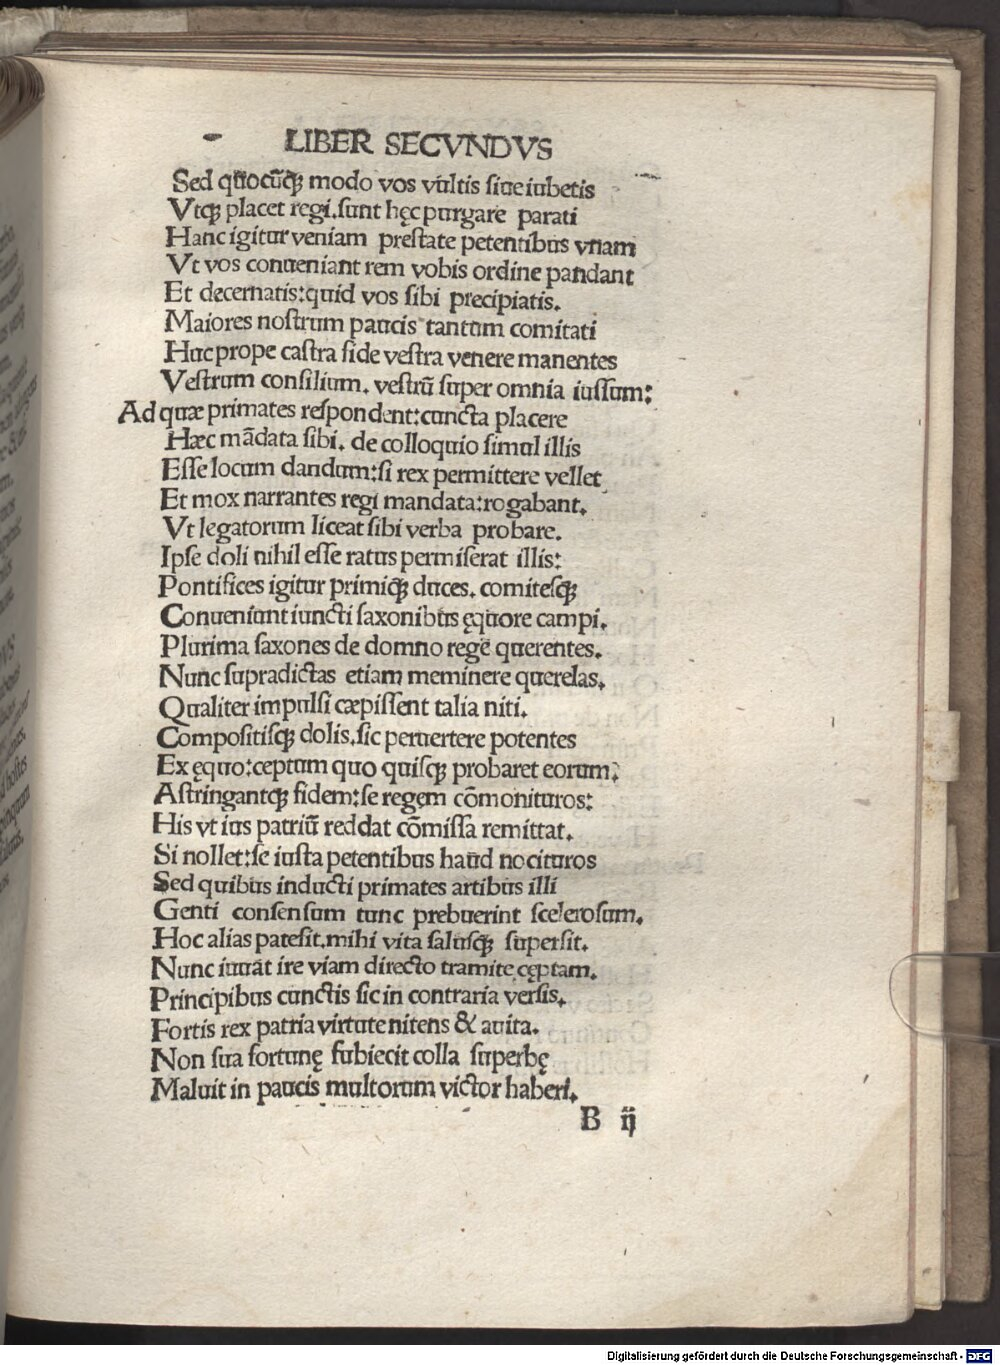 LIBER SECVNDVS
Sed quocūqꝫ modo vos vultis ſiue iubetis
Vtqꝫ placet regi.ſunt hęc purgare parati
Hanc igitur veniam preſtate petentibus vnam
Vt vos conueniant rem vobis ordine pandant
Et decernatis:quid vos ſibi precipiatis.
Maiores noſtrum paucis tantum comitati
Huc prope caſtra fide veſtra venere manentes
Veſtrum conſilium. veſtrū ſuper omnia iuſſum:
Ad quæ primates reſpondent:cuncta placere
Hæc mādata ſibi. de colloquio ſimul illis
Eſſe locum dandum:ſi rex permittere vellet
Et mox narrantes regi mandata:rogabant.
Vt legatorum liceat ſibi verba probare.
Ipſe doli nihil eſſe ratus permiſerat illis:
Pontifices igitur primiqꝫ duces. comiteſqꝫ
Conueniunt iuncti ſaxonibus ęquore campi.
Plurima ſaxones de domno regē querentes.
Nunc ſupradictas etiam meminere querelas.
Qualiter impulſi cæpiſſent talia niti.
Compoſitiſqꝫ dolis.ſic peruertere potentes
Ex ęquo:ceptum quo quiſqꝫ probaret eorum:
Aſtringantqꝫ fidem:ſe regem cōmonituros:
His vt ius patriū reddat cōmiſſa remittat.
Si nollet:ſe iuſta petentibus haud nocituros
Sed quibus inducti primates artibus illi
Genti conſenſum tunc prebuerint ſceleroſum.
Hoc alias pateſit.mihi vita ſaluſqꝫ ſuperſit.
Nunc iuuat ire viam directo tramite cęptam.
Principibus cunctis ſic in contraria verſis.
Fortis rex patria virtute nitens & auita.
Non ſua fortunę ſubiecit colla ſuperbę
Maluit in paucis multorum victor haberi.
B ij
Digitalisierung gefördert durch die Deutsche Forschungsgemeinschaft - DFG